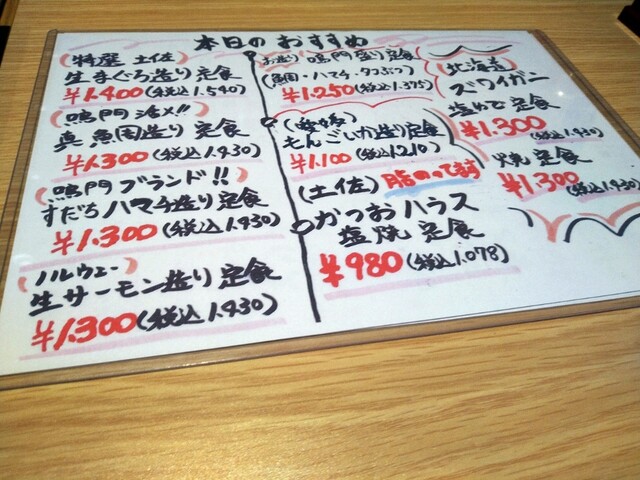 本日のおすすめ
(特選 土佐)
生まぐろ造り定食
¥1.400(税込1.540)
(鳴門活〆!!)
真鯛造り定食
¥1.300(税込1.430)
(鳴門ブランド!!)
すだちハマチ造り定食
¥1.300(税込1.430)
(ノルウェー)
生サーモン造り定食
¥1.300(税込1.430)
鳴門盛り定食
(鯛・ハマチ・タコぶつ)
¥1.250(税込1.375)
もんごいか造り定食
¥1.100(税込1.210)
(土佐)脂のってます
かつおハラス
塩焼定食
¥980(税込1.078)
(北海道)
ズワイガニ
塩ゆで定食
¥1.300(税込1.430)
焼定食
¥1.300(税込1.430)